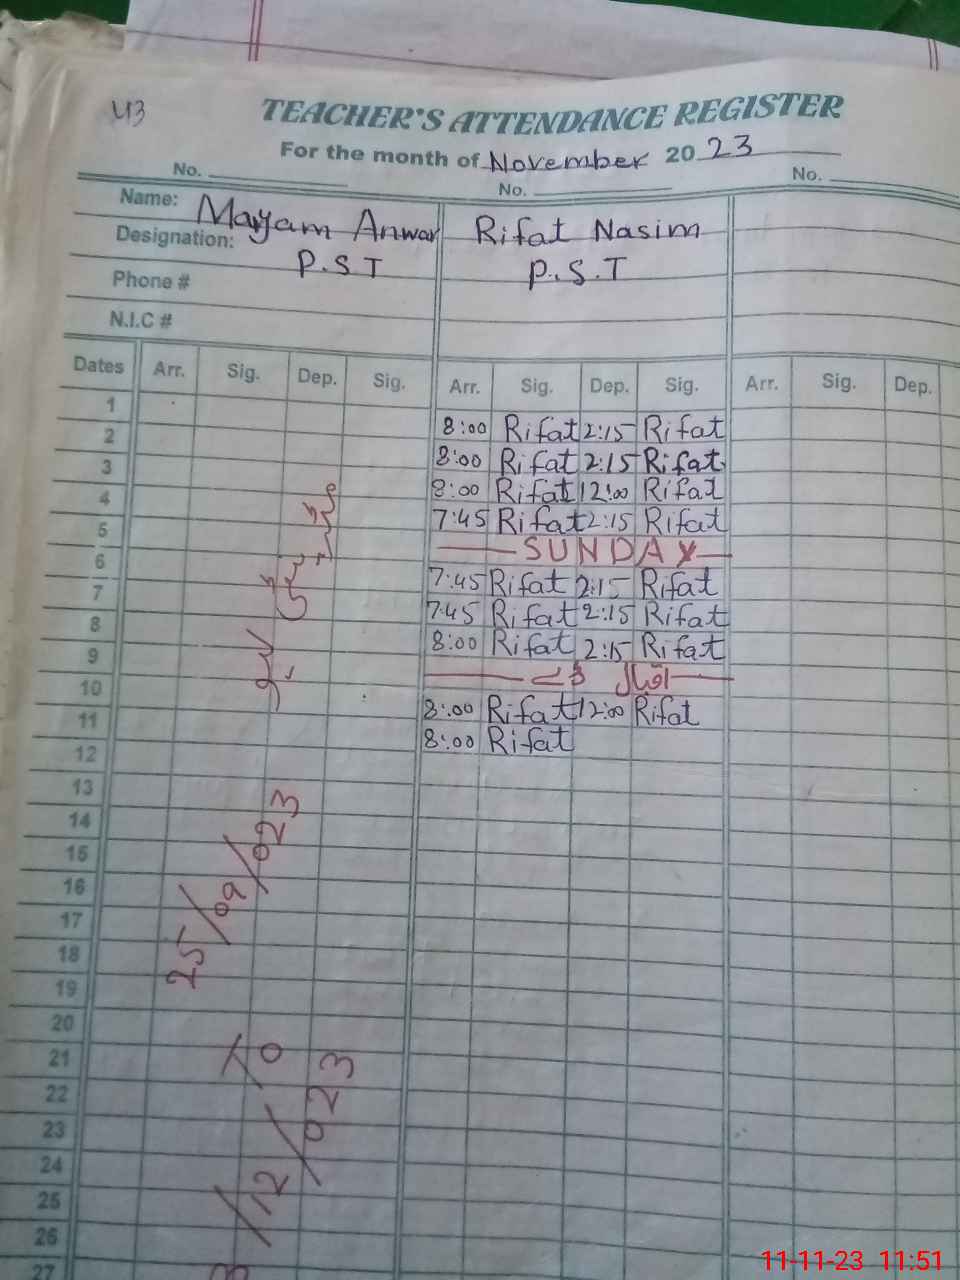 43
TEACHER'S ATTENDANCE REGISTER
For the month of November 20 23
No. No. No.
Name: Maryam Anwar Rifat Nasim
Designation: P.S.T P.S.T
Phone #
N.I.C #
Dates Arr. Sig. Dep. Sig. Arr. Sig. Dep. Sig. Arr. Sig. Dep.
1 8:00 Rifat 2:15 Rifat
2 8:00 Rifat 2:15 Rifat
3 8:00 Rifat 12:00 Rifat
4 7:45 Rifat 2:15 Rifat
5 SUNDAY
6 7:45 Rifat 2:15 Rifat
7 7:45 Rifat 2:15 Rifat
8 8:00 Rifat 2:15 Rifat
9 اقبال ڈے
10 8:00 Rifat 12:00 Rifat
11 8:00 Rifat
12
13
14
15
16
17
18
19
20
21
22
23
24
25
26
27
25/09/023
To
/12/023
11-11-23 11:51